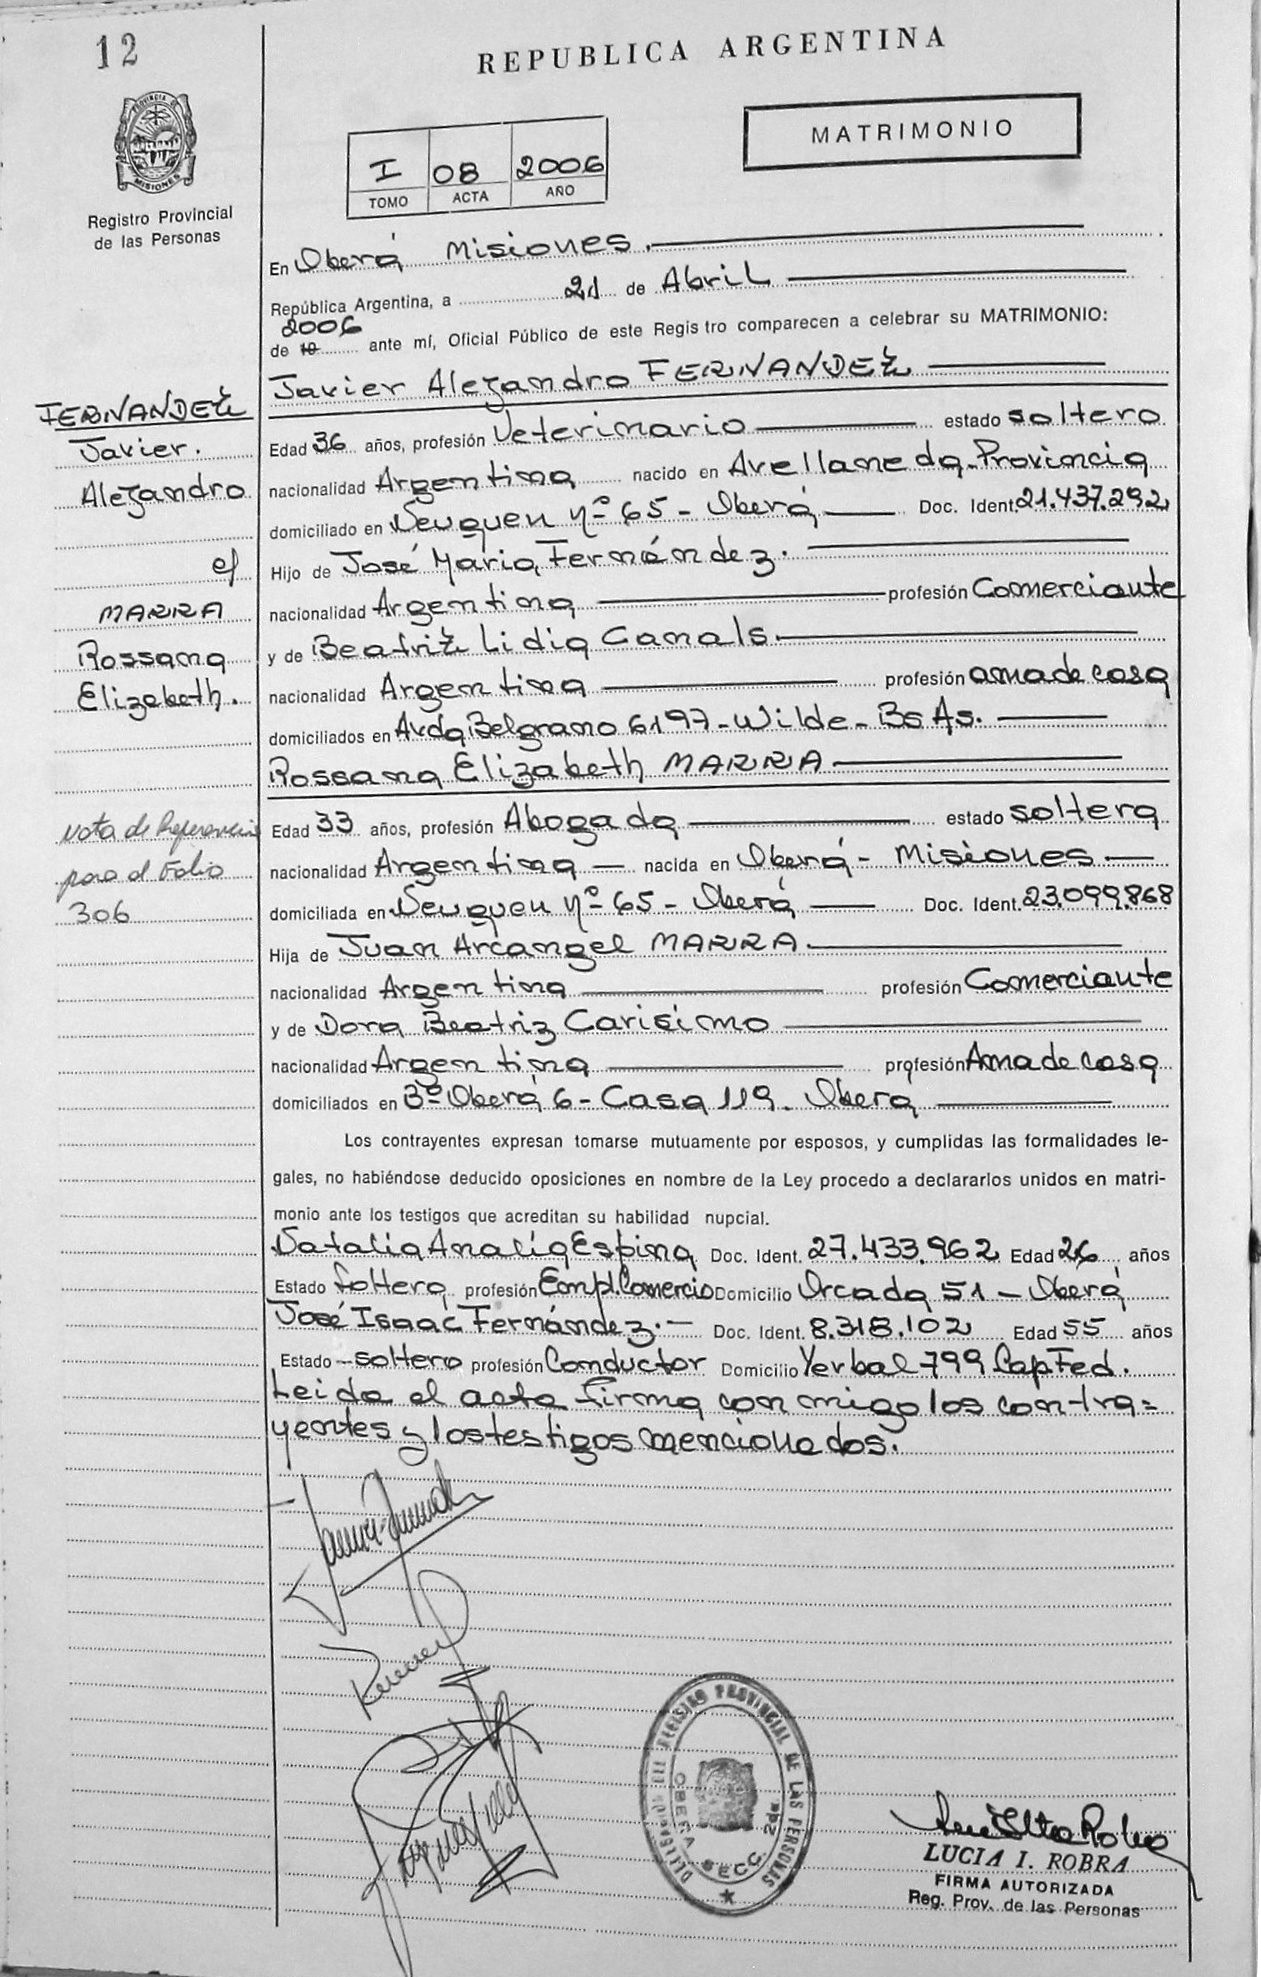 12
REPUBLICA ARGENTINA
MATRIMONIO
PROVINCIA DE
MISIONES
Registro Provincial
de las Personas
I 08 2006
TOMO ACTA AÑO
En Oberá Misiones.
República Argentina, a 21 de Abril
2006
de 19 ante mí, Oficial Público de este Registro comparecen a celebrar su MATRIMONIO:
Javier Alejandro FERNANDEZ
Edad 36 años, profesión Veterinario estado soltero
nacionalidad Argentina nacido en Avellaneda-Provincia
domiciliado en Neuquen Nº 65 - Oberá Doc. Ident. 21.437.292
Hijo de José Maria Fernández.
nacionalidad Argentina profesión Comerciante
y de Beatriz Lidia Canals.
nacionalidad Argentina profesión ama de casa
domiciliados en Avda Belgrano 6197-Wilde-Bs As.
Rossana Elizabeth MARRA
Edad 33 años, profesión Abogada estado soltera
nacionalidad Argentina nacida en Oberá - Misiones
domiciliada en Neuquen Nº 65 - Oberá Doc. Ident. 23.099.868
Hija de Juan Arcangel MARRA
nacionalidad Argentina profesión Comerciante
y de Dora Beatriz Carisimo
nacionalidad Argentina profesión Ama de casa
domiciliados en Bº Oberá 6 - Casa 119. Obera
Los contrayentes expresan tomarse mutuamente por esposos, y cumplidas las formalidades le-
gales, no habiéndose deducido oposiciones en nombre de la Ley procedo a declararlos unidos en matri-
monio ante los testigos que acreditan su habilidad nupcial.
Natalia Analía Espina Doc. Ident. 27.433.962 Edad 26 años
Estado soltera profesión Empl. Comercio Domicilio Orcada 51 - Oberá
José Isaac Fernández.- Doc. Ident. 8.318.102 Edad 55 años
Estado soltero profesión Conductor Domicilio Yerbal 799 Cap Fed.
Leida el acta firma con migo los contra=
yentes y los testigos mencionados.
FERNANDEZ
Javier.
Alejandro
c/
MARRA
Rossana
Elizabeth.
Nota de Referencia
para el Folio
306
DELEGACION DEL REGISTRO PROVINCIAL DE LAS PERSONAS
OBERA SECC. 2da
LUCIA I. ROBRA
FIRMA AUTORIZADA
Reg. Prov. de las Personas